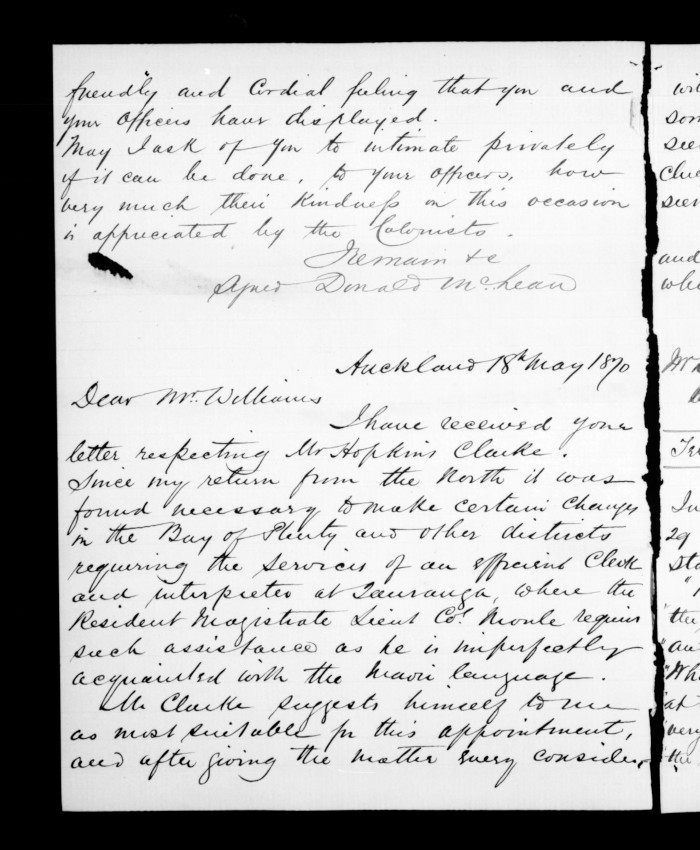 friendly and Cordial feeling that you and
your Officers have displayed.
May I ask of you to intimate privately
if it can be done, to your officers, how
very much their Kindness on this occasion
is appreciated by the Colonists.
I remain &c
Signed Donald McLean
Auckland 18th May 1870
Dear Mr. Williams
I have received your
letter respecting Mr Hopkins Clarke.
Since my return from the North it was
found necessary to make certain Changes
in the Bay of Plenty and other districts
requiring the services of an efficient Clerk
and interpreter at Tauranga, where the
Resident Magistrate Lieut Col. Moule requires
such assistance as he is imperfectly
acquainted with the Maori language.
Mr Clarke suggests himself to me
as most suitable for this appointment,
and after giving the matter every consider
wit
som
see
Clue
seen
and
whi
Mr
Te
In
29
Sta
"the
"au
"Wh
at
very
the